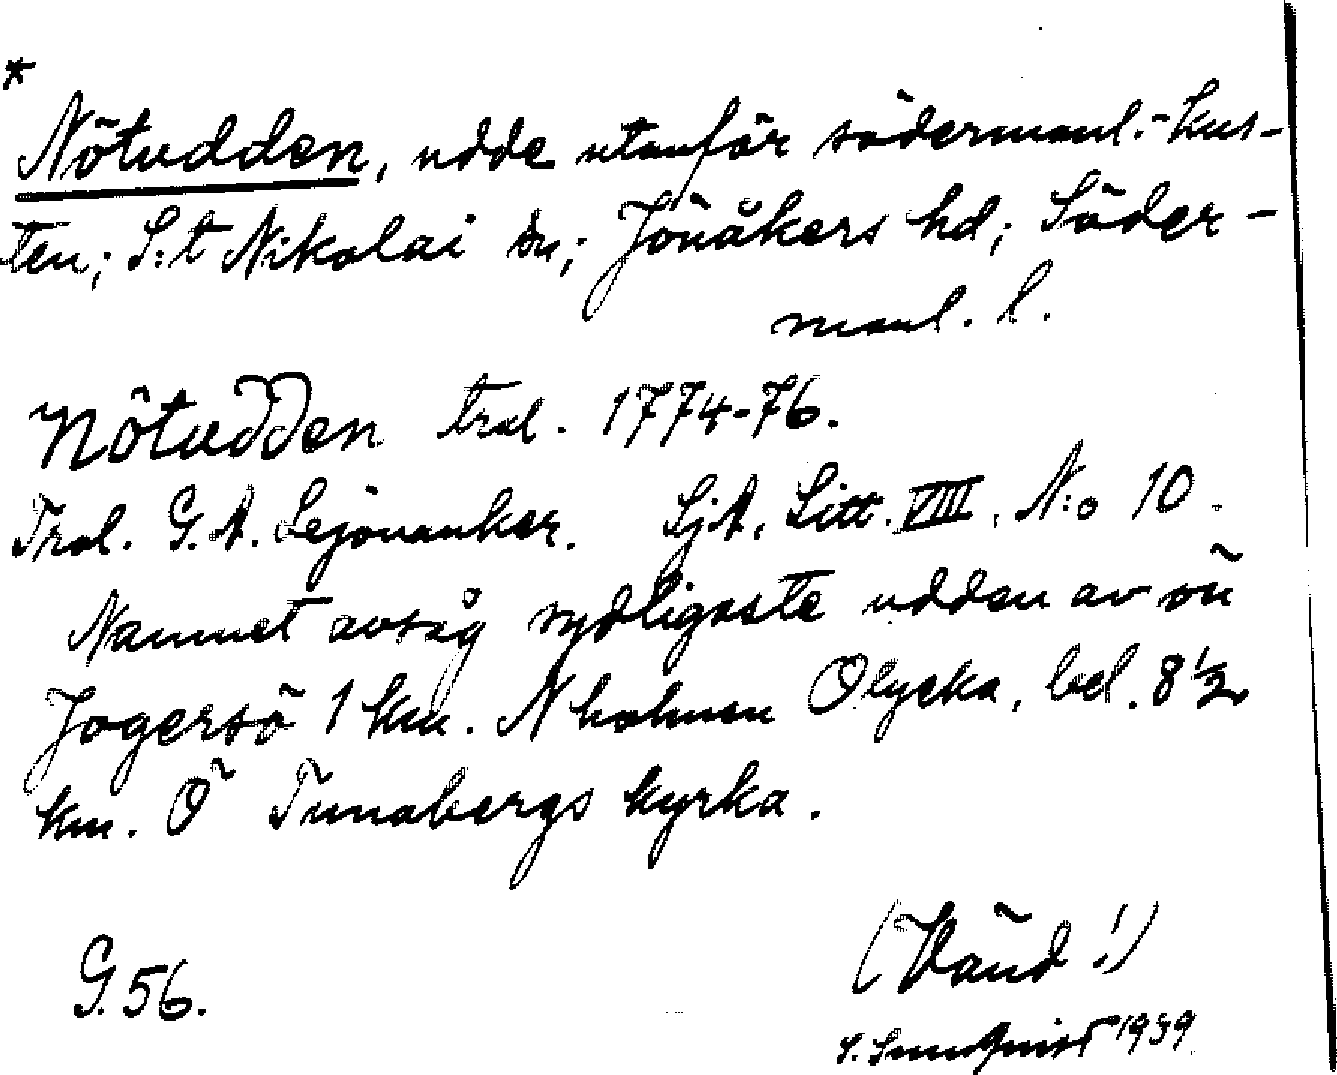 *
Nötudden, udde utanför södermanl.-kus-
ten; S:t Nikolai sn; Jönåkers hd; Söder-
manl. l.
Nötudden trol. 1774-76.
Trol. G. A. Lejonanker. SjA, Litt. VIII. N:o 10.
Namnet avsåg sydligaste udden av ön
Jogersö 1 km. N holmen Olycka, bel. 8 1/2
km. Ö Tunabergs kyrka.
G. 56.
(Vänd!)
S. Sundqvist 1939